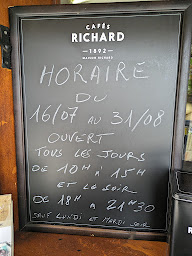 CAFÉS
RICHARD
1892
MAISON RICHARD
HORAIRE
DU
16/07 AU 31/08
OUVERT
TOUS LES JOURS
DE 10H À 15H
ET LE SOIR
DE 18H À 21H30
SAUF LUNDI ET MARDI SOIR